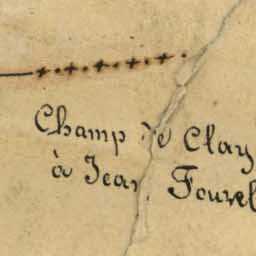 Champ de Clay
à Jean Fouvel